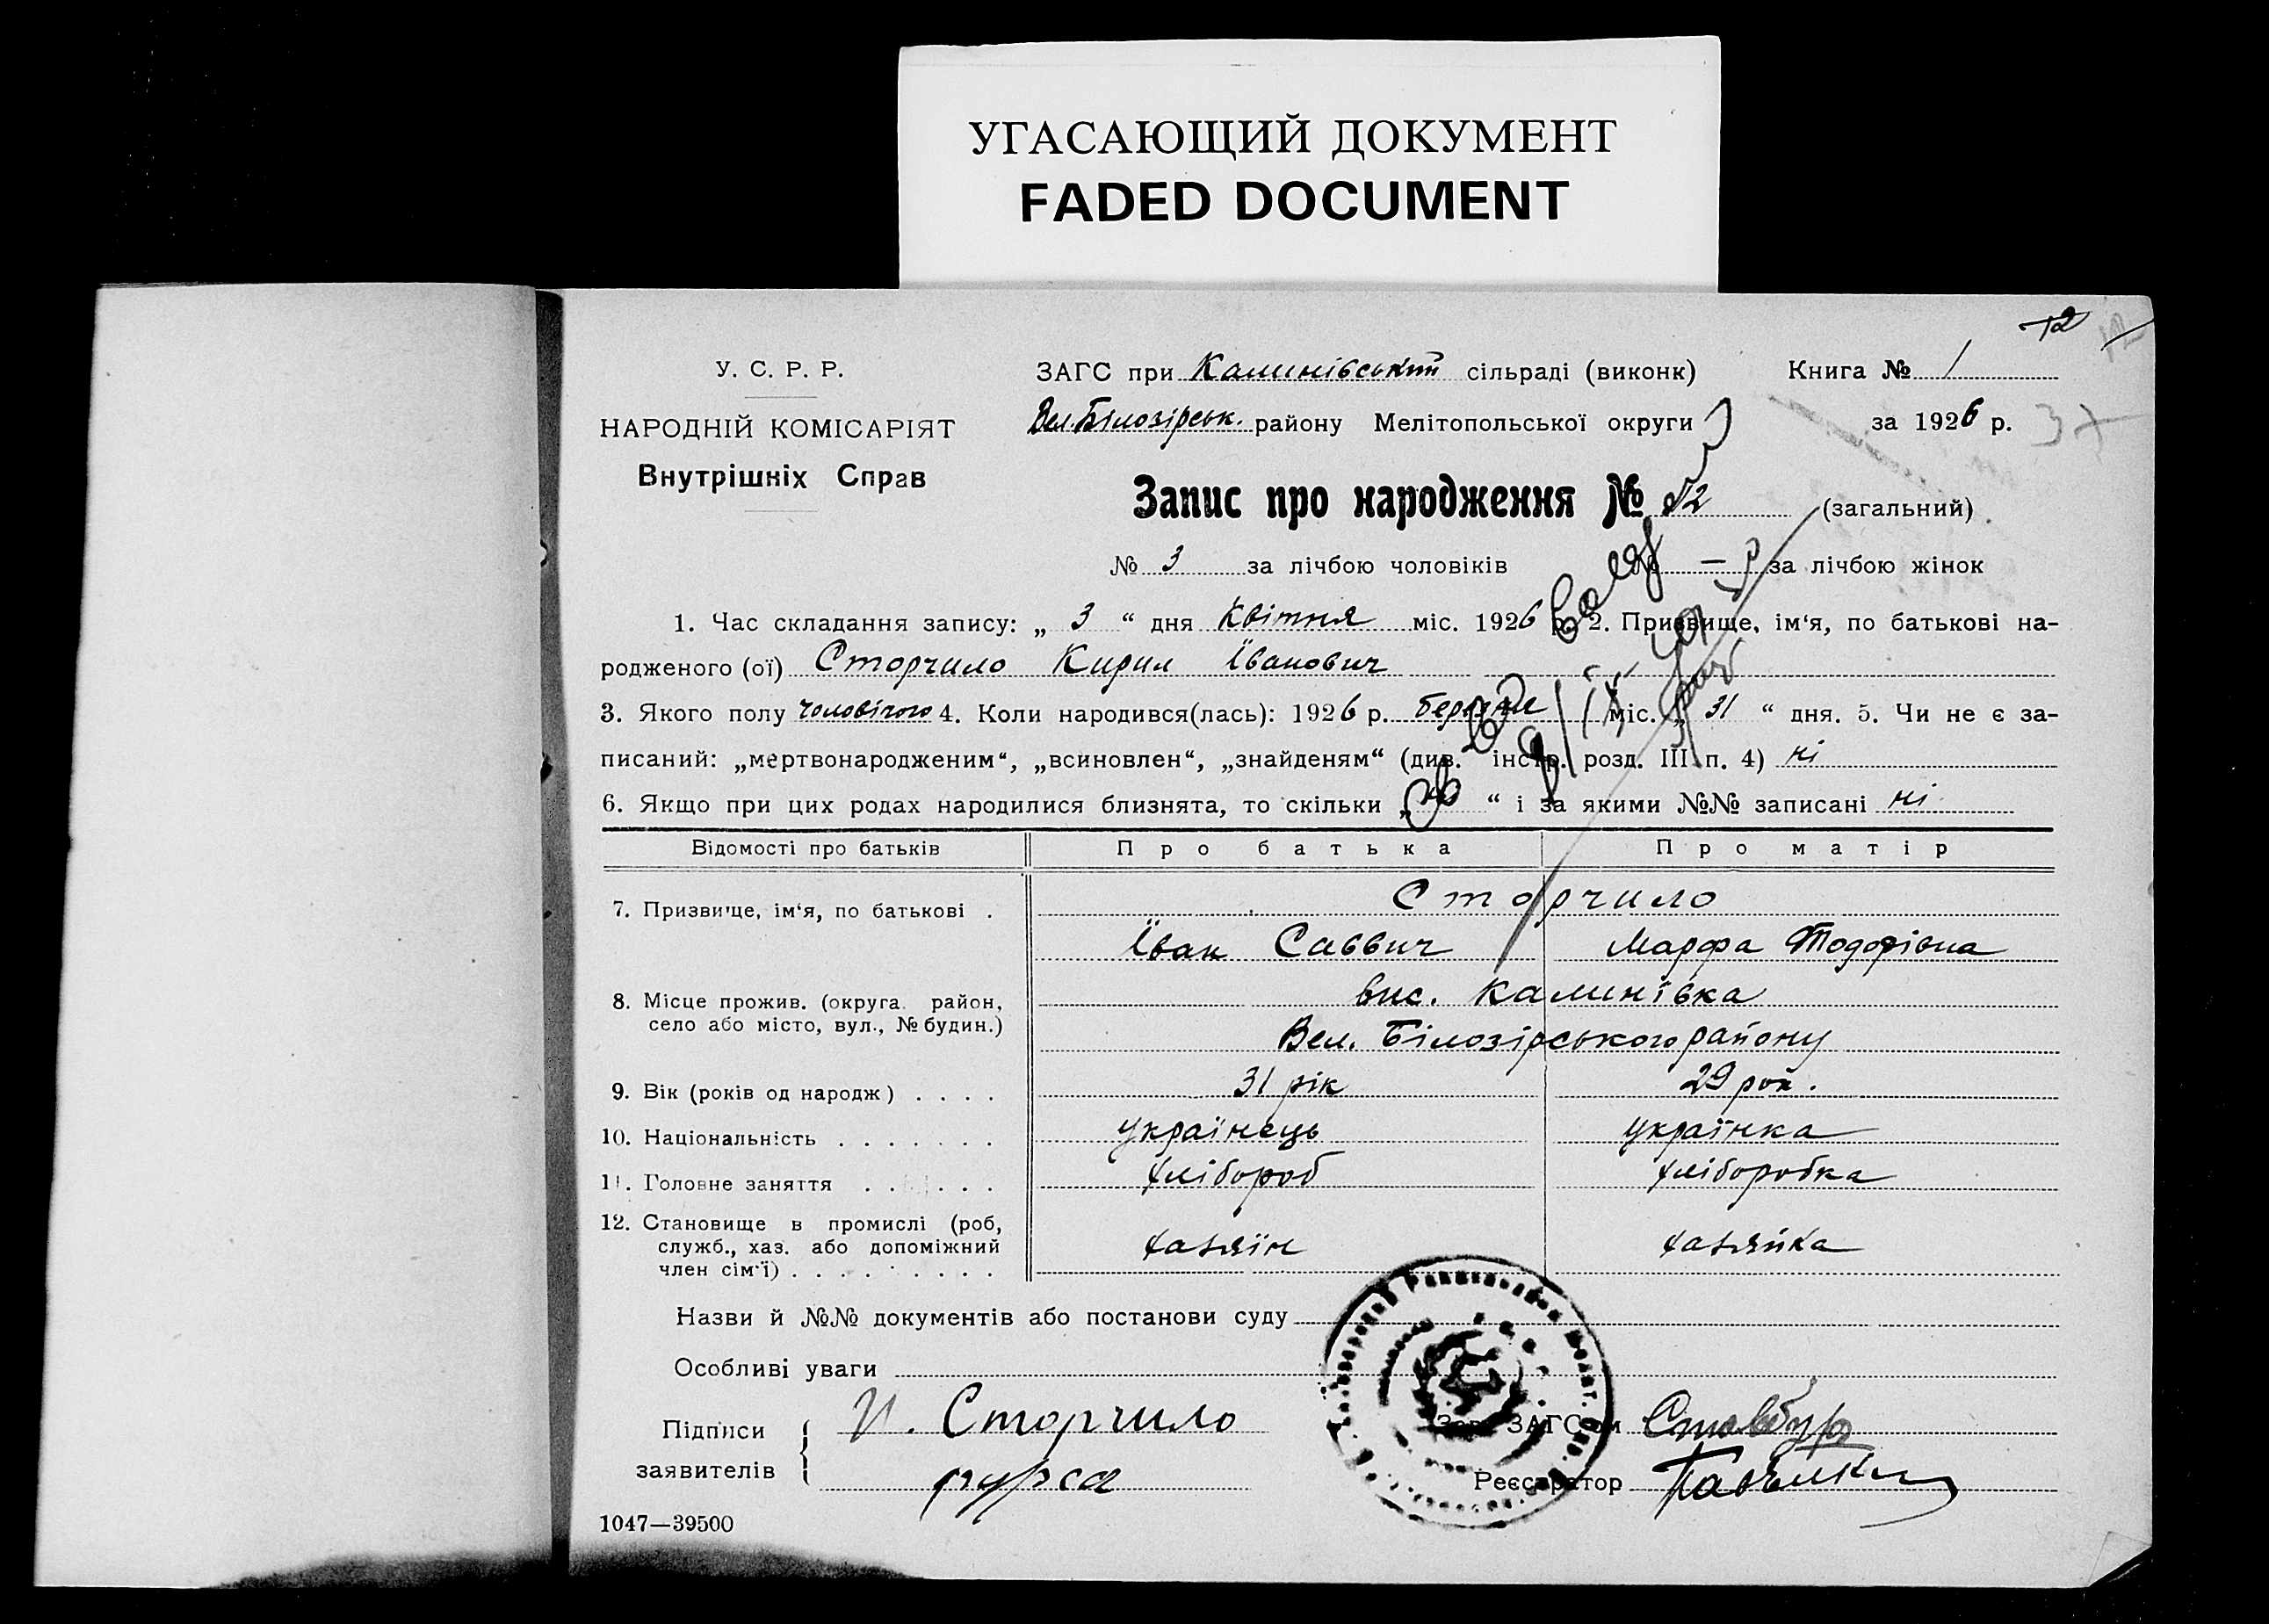 УГАСАЮЩИЙ ДОКУМЕНТ
FADED DOCUMENT
12
У. С. Р. Р.
НАРОДНІЙ КОМІСАРІЯТ
Внутрішніх Справ
ЗАГС при Калинівській сільраді (виконк)
Книга № 1
Вел. Білозірськ. району Мелітопольської округи
за 1926 р.
37
Запис про народження № 12 (загальний)
№ 3 за лічбою чоловіків № — за лічбою жінок
1. Час складання запису: „ 3 “ дня Квітня міс. 1926 р. 2. Призвище, ім‘я, по батькові на-
родженого (ої) Сторчило Кирил Їванович
3. Якого полу чоловічого 4. Коли народився(лась): 1926 р. березня міс. „ 31 “ дня. 5. Чи не є за-
писаний: „мертвонародженим“, „всиновлен“, „знайденям“ (див. інстр. розд. III п. 4) ні
6. Якщо при цих родах народилися близнята, то скільки „ “ і за якими №№ записані ні
Відомості про батьків Про батька Про матір
7. Призвище, ім‘я, по батькові .
Сторчило
Їван Саввич Марфа Тодорівна
8. Місце прожив. (округа. район,
село або місто, вул., № будин.)
вис. Калинївка
Вел. Білозірського району
9. Вік (років од народж) . . . . 31 рік 29 рок.
10. Національність . . . . . . . українець українка
11. Головне заняття . . . . . . хлібороб хліборобка
12. Становище в промислі (роб,
служб., хаз. або допоміжний
член сім‘ї) . . . . . . . . .
хазяїн хазяйка
Назви й №№ документів або постанови суду
Особливі уваги
Підписи
заявителів
И. Сторчило
Зав. ЗАГС‘ом
Реєстратор
1047—39500